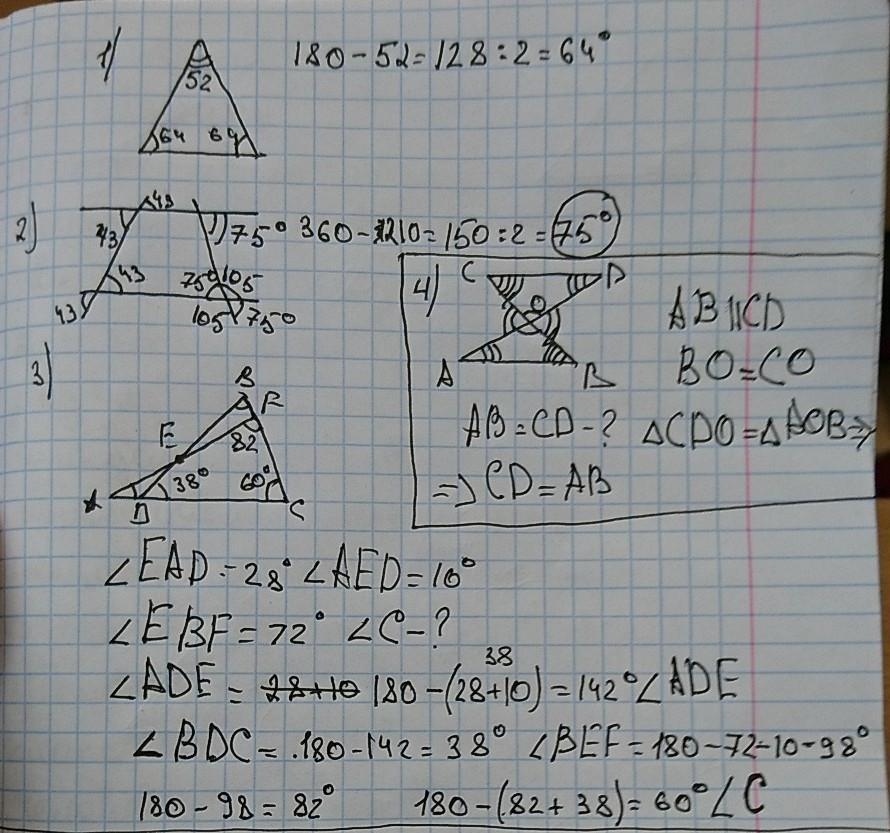 1)
52
64 64
180-52=128:2=64°
2)
43
43
75°
43
75° 105
43
105 75°
360-1210=150:2=75°
3)
B
F
E
82
38° 60°
A D C
4)
C D
O
A B
AB||CD
BO=CO
AB=CD-? △CDO=△AOB⇒
⇒CD=AB
∠EAD-28° ∠AED=10°
∠EBF=72° ∠C-?
38
∠ADE = 28+10 180-(28+10)=142° ∠ADE
∠BDC=.180-142=38° ∠BEF=180-72-10-98°
180-98=82° 180-(82+38)=60° ∠C